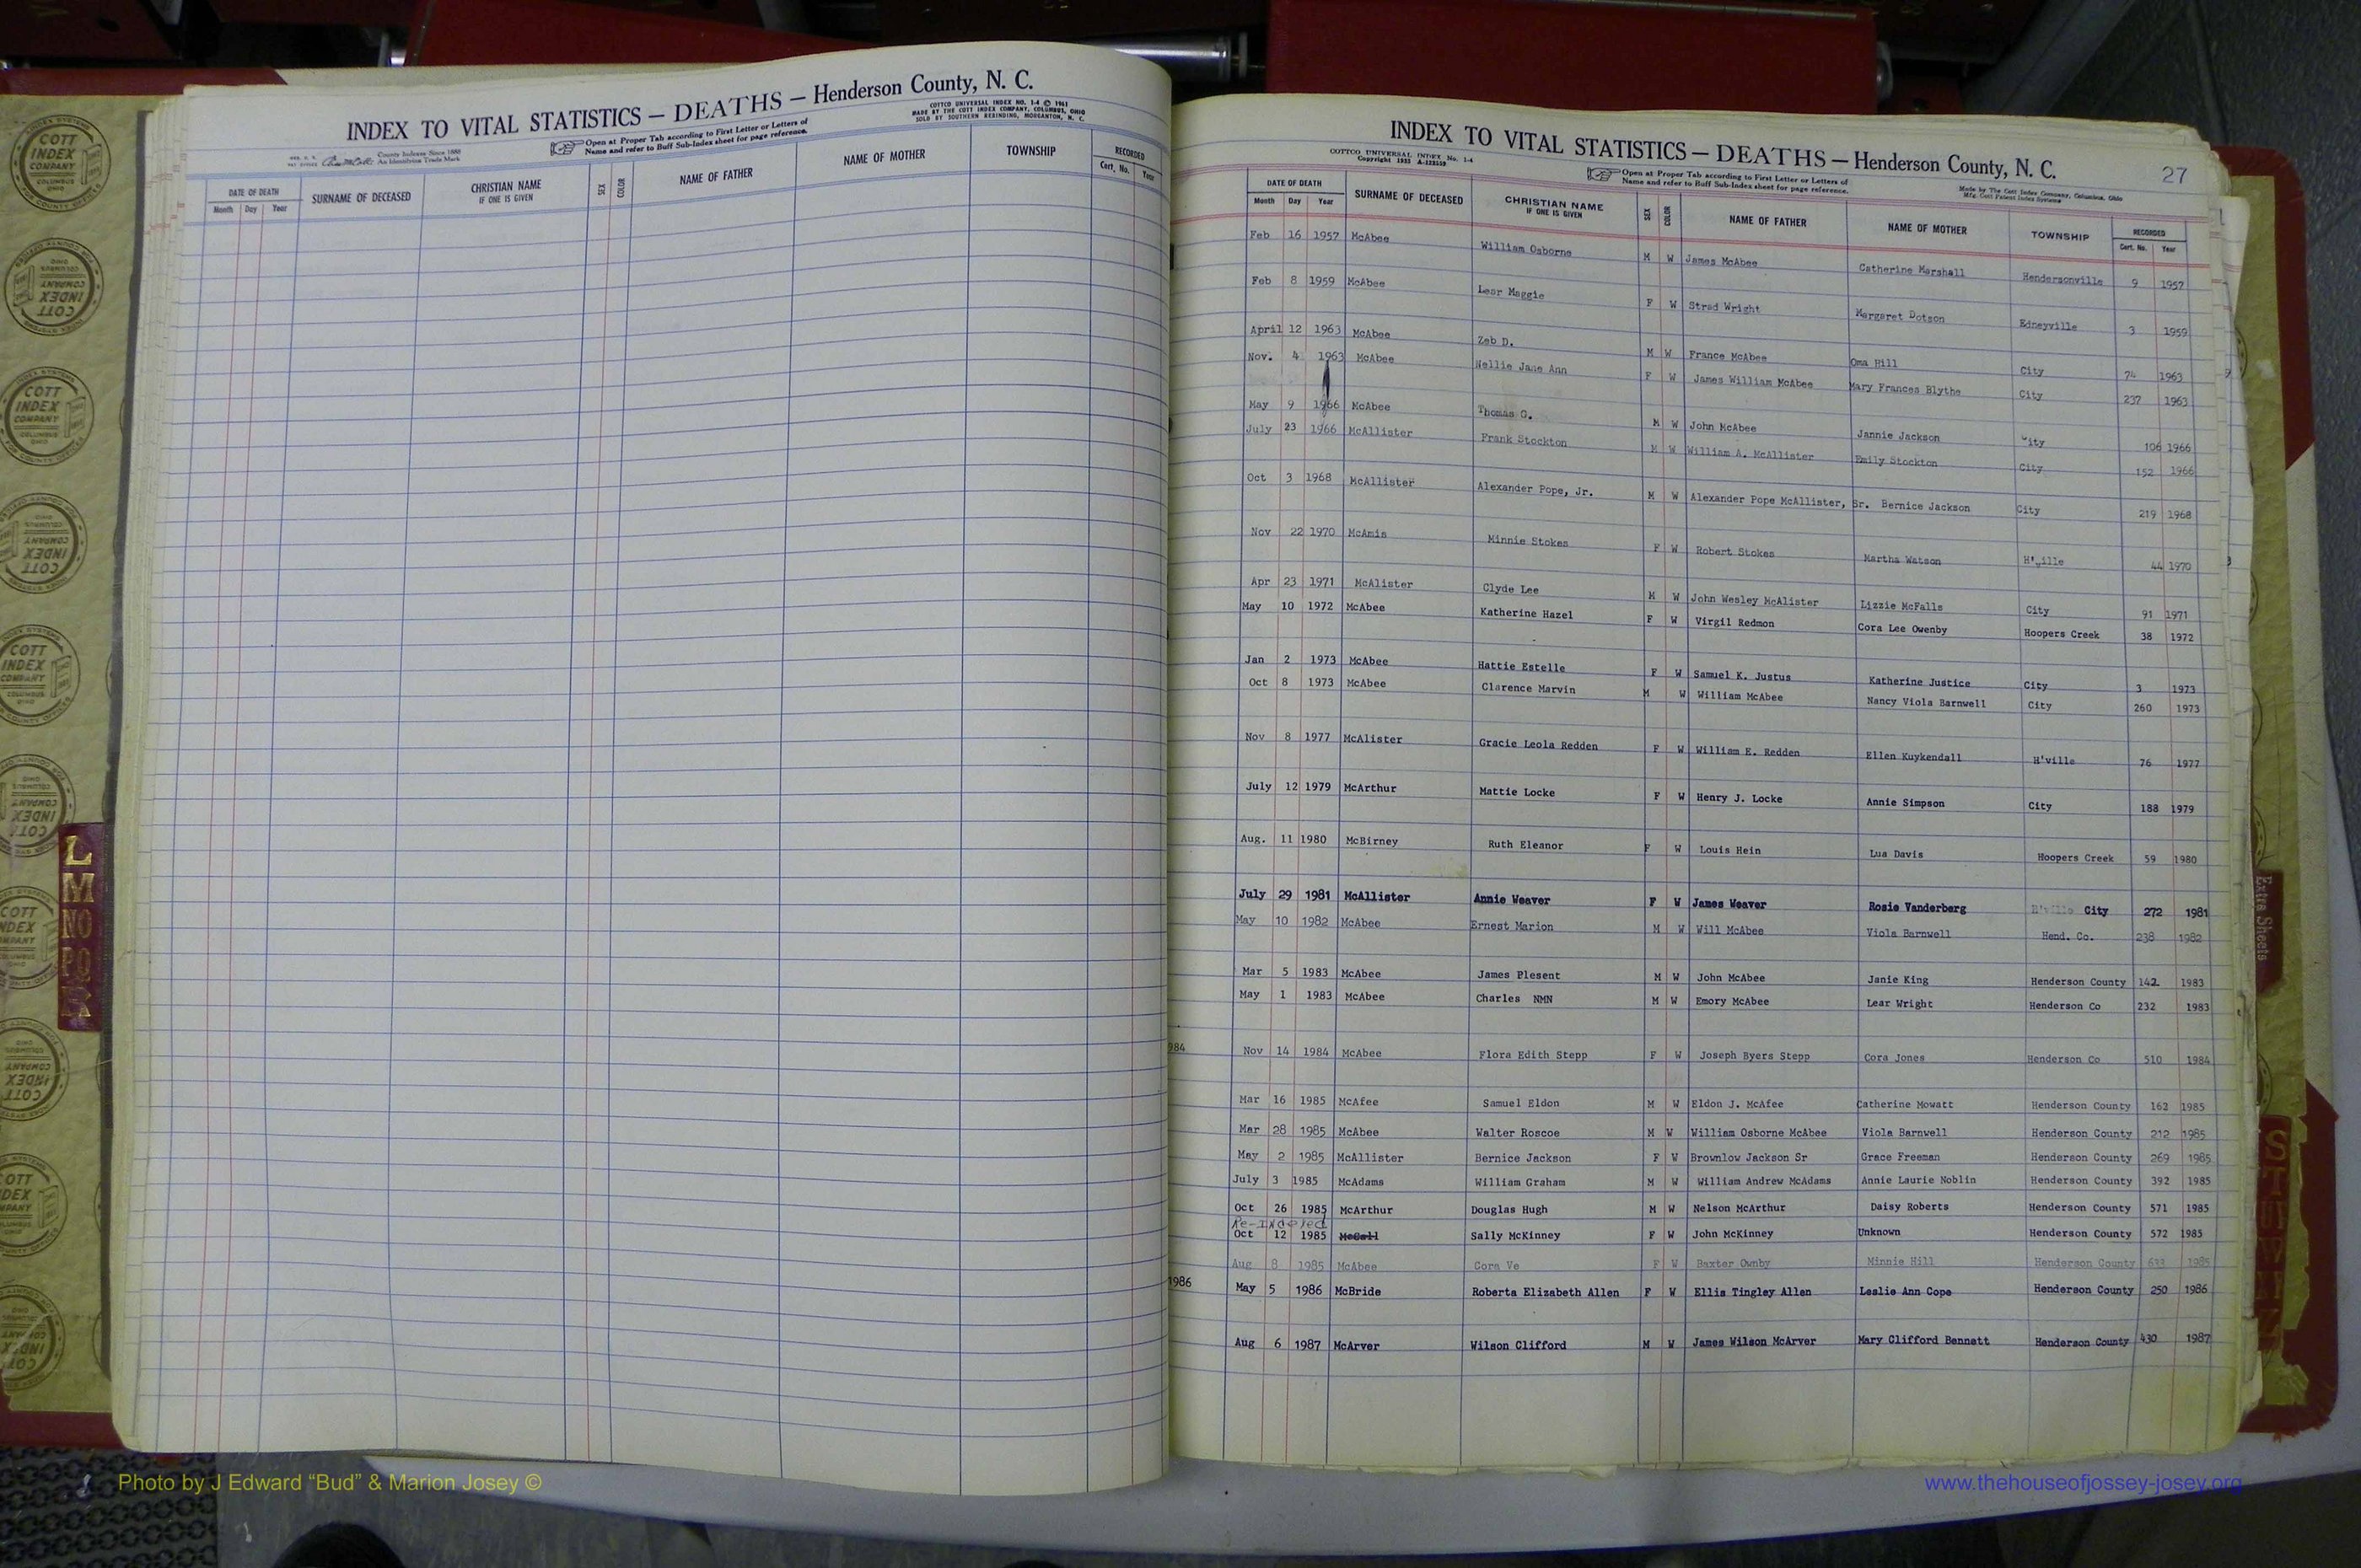 INDEX TO VITAL STATISTICS — DEATHS — Henderson County, N. C.
COTTCO UNIVERSAL INDEX NO. 1-4 © 1961
MADE BY THE COTT INDEX COMPANY, COLUMBUS, OHIO
SOLD BY SOUTHERN REBINDING, MORGANTON, N. C.
County Indexes Since 1888
An Identifying Trade Mark
Open at Proper Tab according to First Letter or Letters of
Name and refer to Buff Sub-Index sheet for page reference.
DATE OF DEATH SURNAME OF DECEASED CHRISTIAN NAME IF ONE IS GIVEN SEX COLOR NAME OF FATHER NAME OF MOTHER TOWNSHIP RECORDED
Month Day Year Cert. No. Year
INDEX TO VITAL STATISTICS — DEATHS — Henderson County, N. C.
27
COTTCO UNIVERSAL INDEX No. 1-4
Open at Proper Tab according to First Letter or Letters of
Name and refer to Buff Sub-Index sheet for page reference.
Made by The Cott Index Company, Columbus, Ohio
DATE OF DEATH SURNAME OF DECEASED CHRISTIAN NAME IF ONE IS GIVEN SEX COLOR NAME OF FATHER NAME OF MOTHER TOWNSHIP RECORDED
Month Day Year Cert. No. Year
Feb 16 1957 McAbee William Osborne M W James McAbee Catherine Marshall Hendersonville 9 1957
Feb 8 1959 McAbee Lear Maggie F W Strad Wright Margaret Dotson Edneyville 3 1959
April 12 1963 McAbee Zeb D. M W France McAbee Oma Hill City 74 1963
Nov. 4 1963 McAbee Nellie Jane Ann F W James William McAbee Mary Frances Blythe City 237 1963
May 9 1966 McAbee Thomas G. M W John McAbee Jannie Jackson City 106 1966
July 23 1966 McAllister Frank Stockton M W William A. McAllister Emily Stockton City 152 1966
Oct 3 1968 McAllister Alexander Pope, Jr. M W Alexander Pope McAllister, Sr. Bernice Jackson City 219 1968
Nov 22 1970 McAmis Minnie Stokes F W Robert Stokes Martha Watson H'ville 44 1970
Apr 23 1971 McAlister Clyde Lee M W John Wesley McAlister Lizzie McFalls City 91 1971
May 10 1972 McAbee Katherine Hazel F W Virgil Redmon Cora Lee Owenby Hoopers Creek 38 1972
Jan 2 1973 McAbee Hattie Estelle F W Samuel K. Justus Katherine Justice City 3 1973
Oct 8 1973 McAbee Clarence Marvin M W William McAbee Nancy Viola Barnwell City 260 1973
Nov 8 1977 McAlister Gracie Leola Redden F W William E. Redden Ellen Kuykendall H'ville 76 1977
July 12 1979 McArthur Mattie Locke F W Henry J. Locke Annie Simpson City 188 1979
Aug. 11 1980 McBirney Ruth Eleanor F W Louis Hein Lua Davis Hoopers Creek 59 1980
July 29 1981 McAllister Annie Weaver F W James Weaver Rosie Vanderberg City 272 1981
May 10 1982 McAbee Ernest Marion M W Will McAbee Viola Barnwell Hend. Co. 238 1982
Mar 5 1983 McAbee James Plesent M W John McAbee Janie King Henderson County 142 1983
May 1 1983 McAbee Charles NMN M W Emory McAbee Lear Wright Henderson Co 232 1983
984 Nov 14 1984 McAbee Flora Edith Stepp F W Joseph Byers Stepp Cora Jones Henderson Co 510 1984
Mar 16 1985 McAfee Samuel Eldon M W Eldon J. McAfee Catherine Mowatt Henderson County 162 1985
Mar 28 1985 McAbee Walter Roscoe M W William Osborne McAbee Viola Barnwell Henderson County 212 1985
May 2 1985 McAllister Bernice Jackson F W Brownlow Jackson Sr Grace Freeman Henderson County 269 1985
July 3 1985 McAdams William Graham M W William Andrew McAdams Annie Laurie Noblin Henderson County 392 1985
Oct 26 1985 McArthur Douglas Hugh M W Nelson McArthur Daisy Roberts Henderson County 571 1985
Re-Indexed
Oct 12 1985 McCall Sally McKinney F W John McKinney Unknown Henderson County 572 1985
Aug 8 1985 McAbee Cora Ve F W Baxter Ownby Minnie Hill Henderson County 633 1985
1986 May 5 1986 McBride Roberta Elizabeth Allen F W Ellis Tingley Allen Leslie Ann Cope Henderson County 250 1986
Aug 6 1987 McArver Wilson Clifford M W James Wilson McArver Mary Clifford Bennett Henderson County 430 1987
L
M
NO
PQ
Extra Sheets
COTT
INDEX
COMPANY
COLUMBUS
OHIO
Photo by J Edward “Bud” & Marion Josey ©
www.thehouseofjossey-josey.org